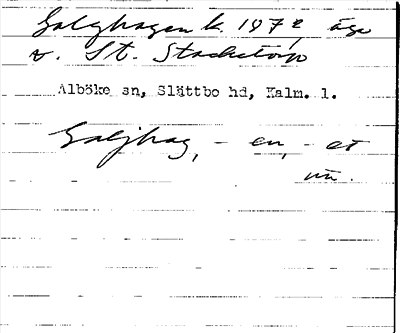 Galghagen k. 1972, äga
v. St. Stacketorp
Alböke sn, Slättbo hd, Kalm. l.
Galjhag, - en, - et
un.